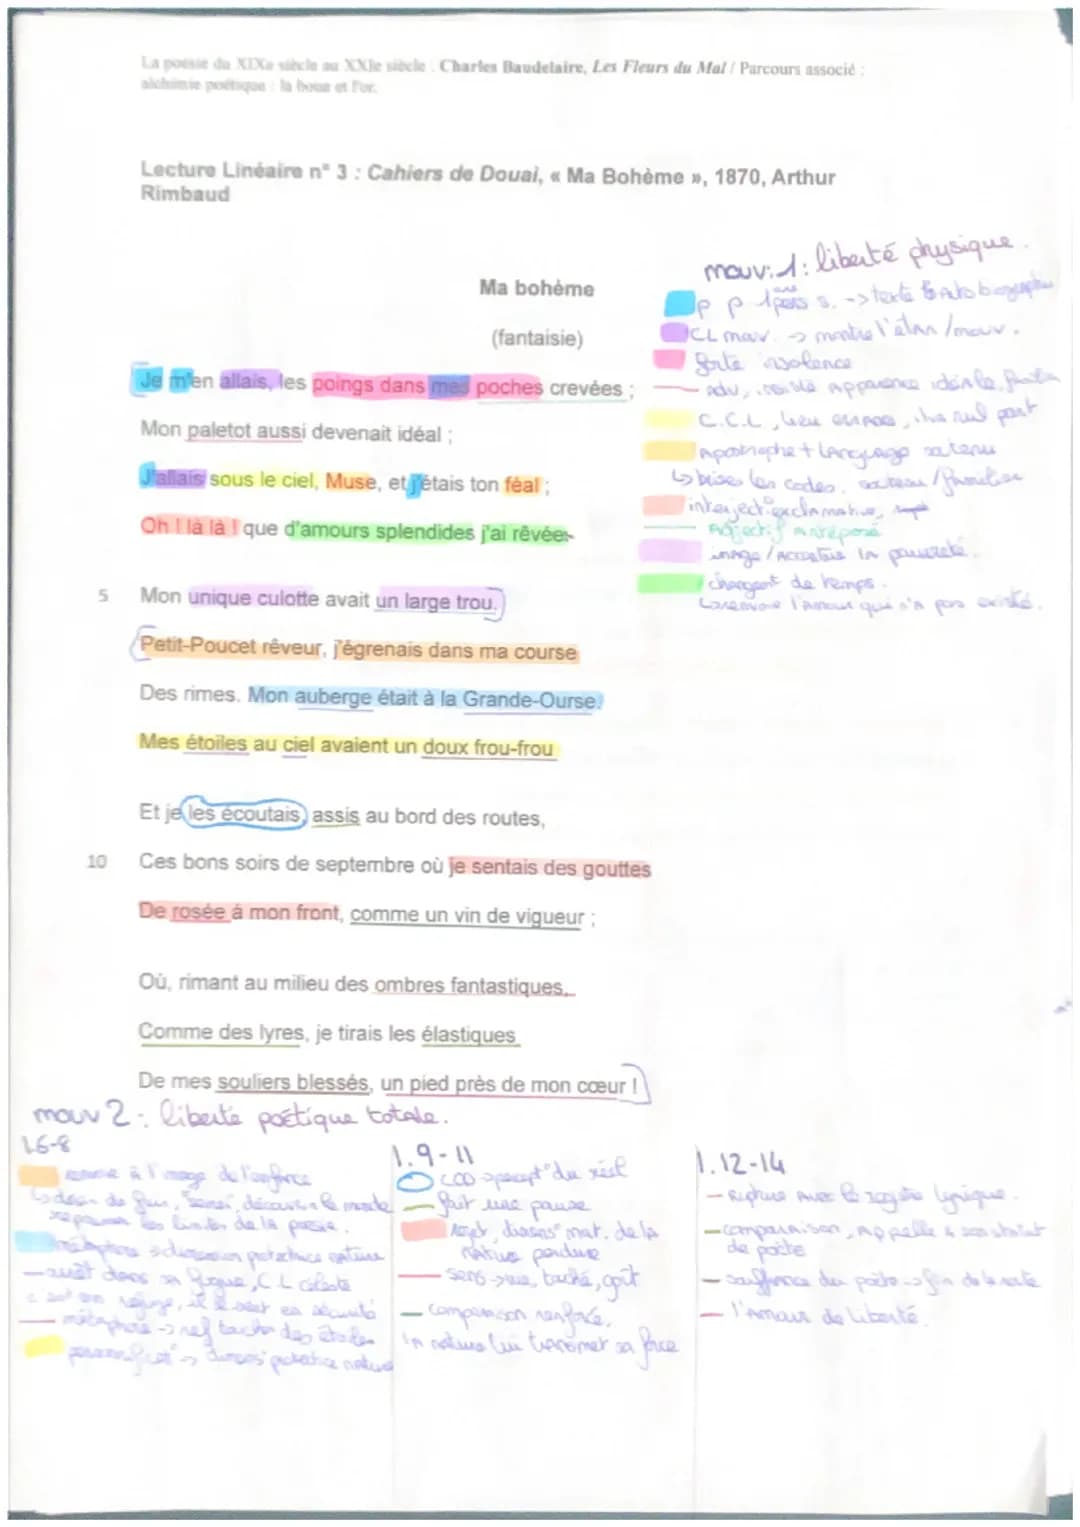 La poésie du XIXe siècle au XXIe siècle : Charles Baudelaire, Les Fleurs du Mal / Parcours associé :
alchimie poétique : la boue et l'or.
Lecture Linéaire n° 3 : Cahiers de Douai, « Ma Bohème », 1870, Arthur
Rimbaud
mouv. 1 : liberté physique.
Ma bohème
p p 1ère pers s. -> texte autobiographie
(fantaisie)
CL mouv. -> montre l'élan / mouv.
forte insolence
Je m'en allais, les poings dans mes poches crevées ;
Mon paletot aussi devenait idéal ;
J'allais sous le ciel, Muse, et j'étais ton féal ;
Oh ! là là ! que d'amours splendides j'ai rêvées
C.C.L, lieu
Apostrophe + langage soutenu
↳ brise les codes, soutenu / familier
interject° exclamative,
Adjectif antéposé
image / accentue la pauvreté.
changent de temps.
l'amour qui n'a pas existé.
5 Mon unique culotte avait un large trou.
Petit-Poucet rêveur, j'égrenais dans ma course
Des rimes. Mon auberge était à la Grande-Ourse.
Mes étoiles au ciel avaient un doux frou-frou
Et je les écoutais, assis au bord des routes,
10 Ces bons soirs de septembre où je sentais des gouttes
De rosée á mon front, comme un vin de vigueur ;
Où, rimant au milieu des ombres fantastiques,
Comme des lyres, je tirais les élastiques
De mes souliers blessés, un pied près de mon cœur !
mouv 2 : liberté poétique totale.
l.6-8
à l'image de l'enfance
les limites de la poésie.
métaphore
métaphore ->
l.9-11
COD percept° du réel
fait une pause
mat. de la
nature
sens -> vue, touché, goût
comparaison renforcé.
la nature lui transmet sa force
l.12-14
- Rupture avec le registre lyrique.
- comparaison, appelle à son statut
de poète
- souffrance du poète ->
- l'amour de liberté.